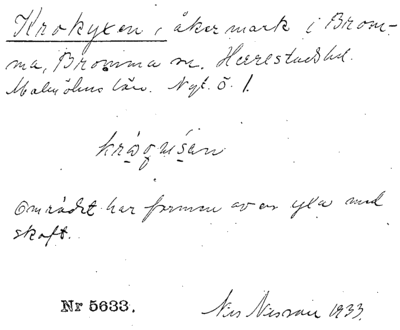 Krokyxen, åkermark i Brom-
ma, Bromma sn. Herrestads hd.
Malmöhus län. Nyt. ö. 1.
Området har formen av en yxa med
skaft.
Nr 5633.
Nils Nilsson 1933.